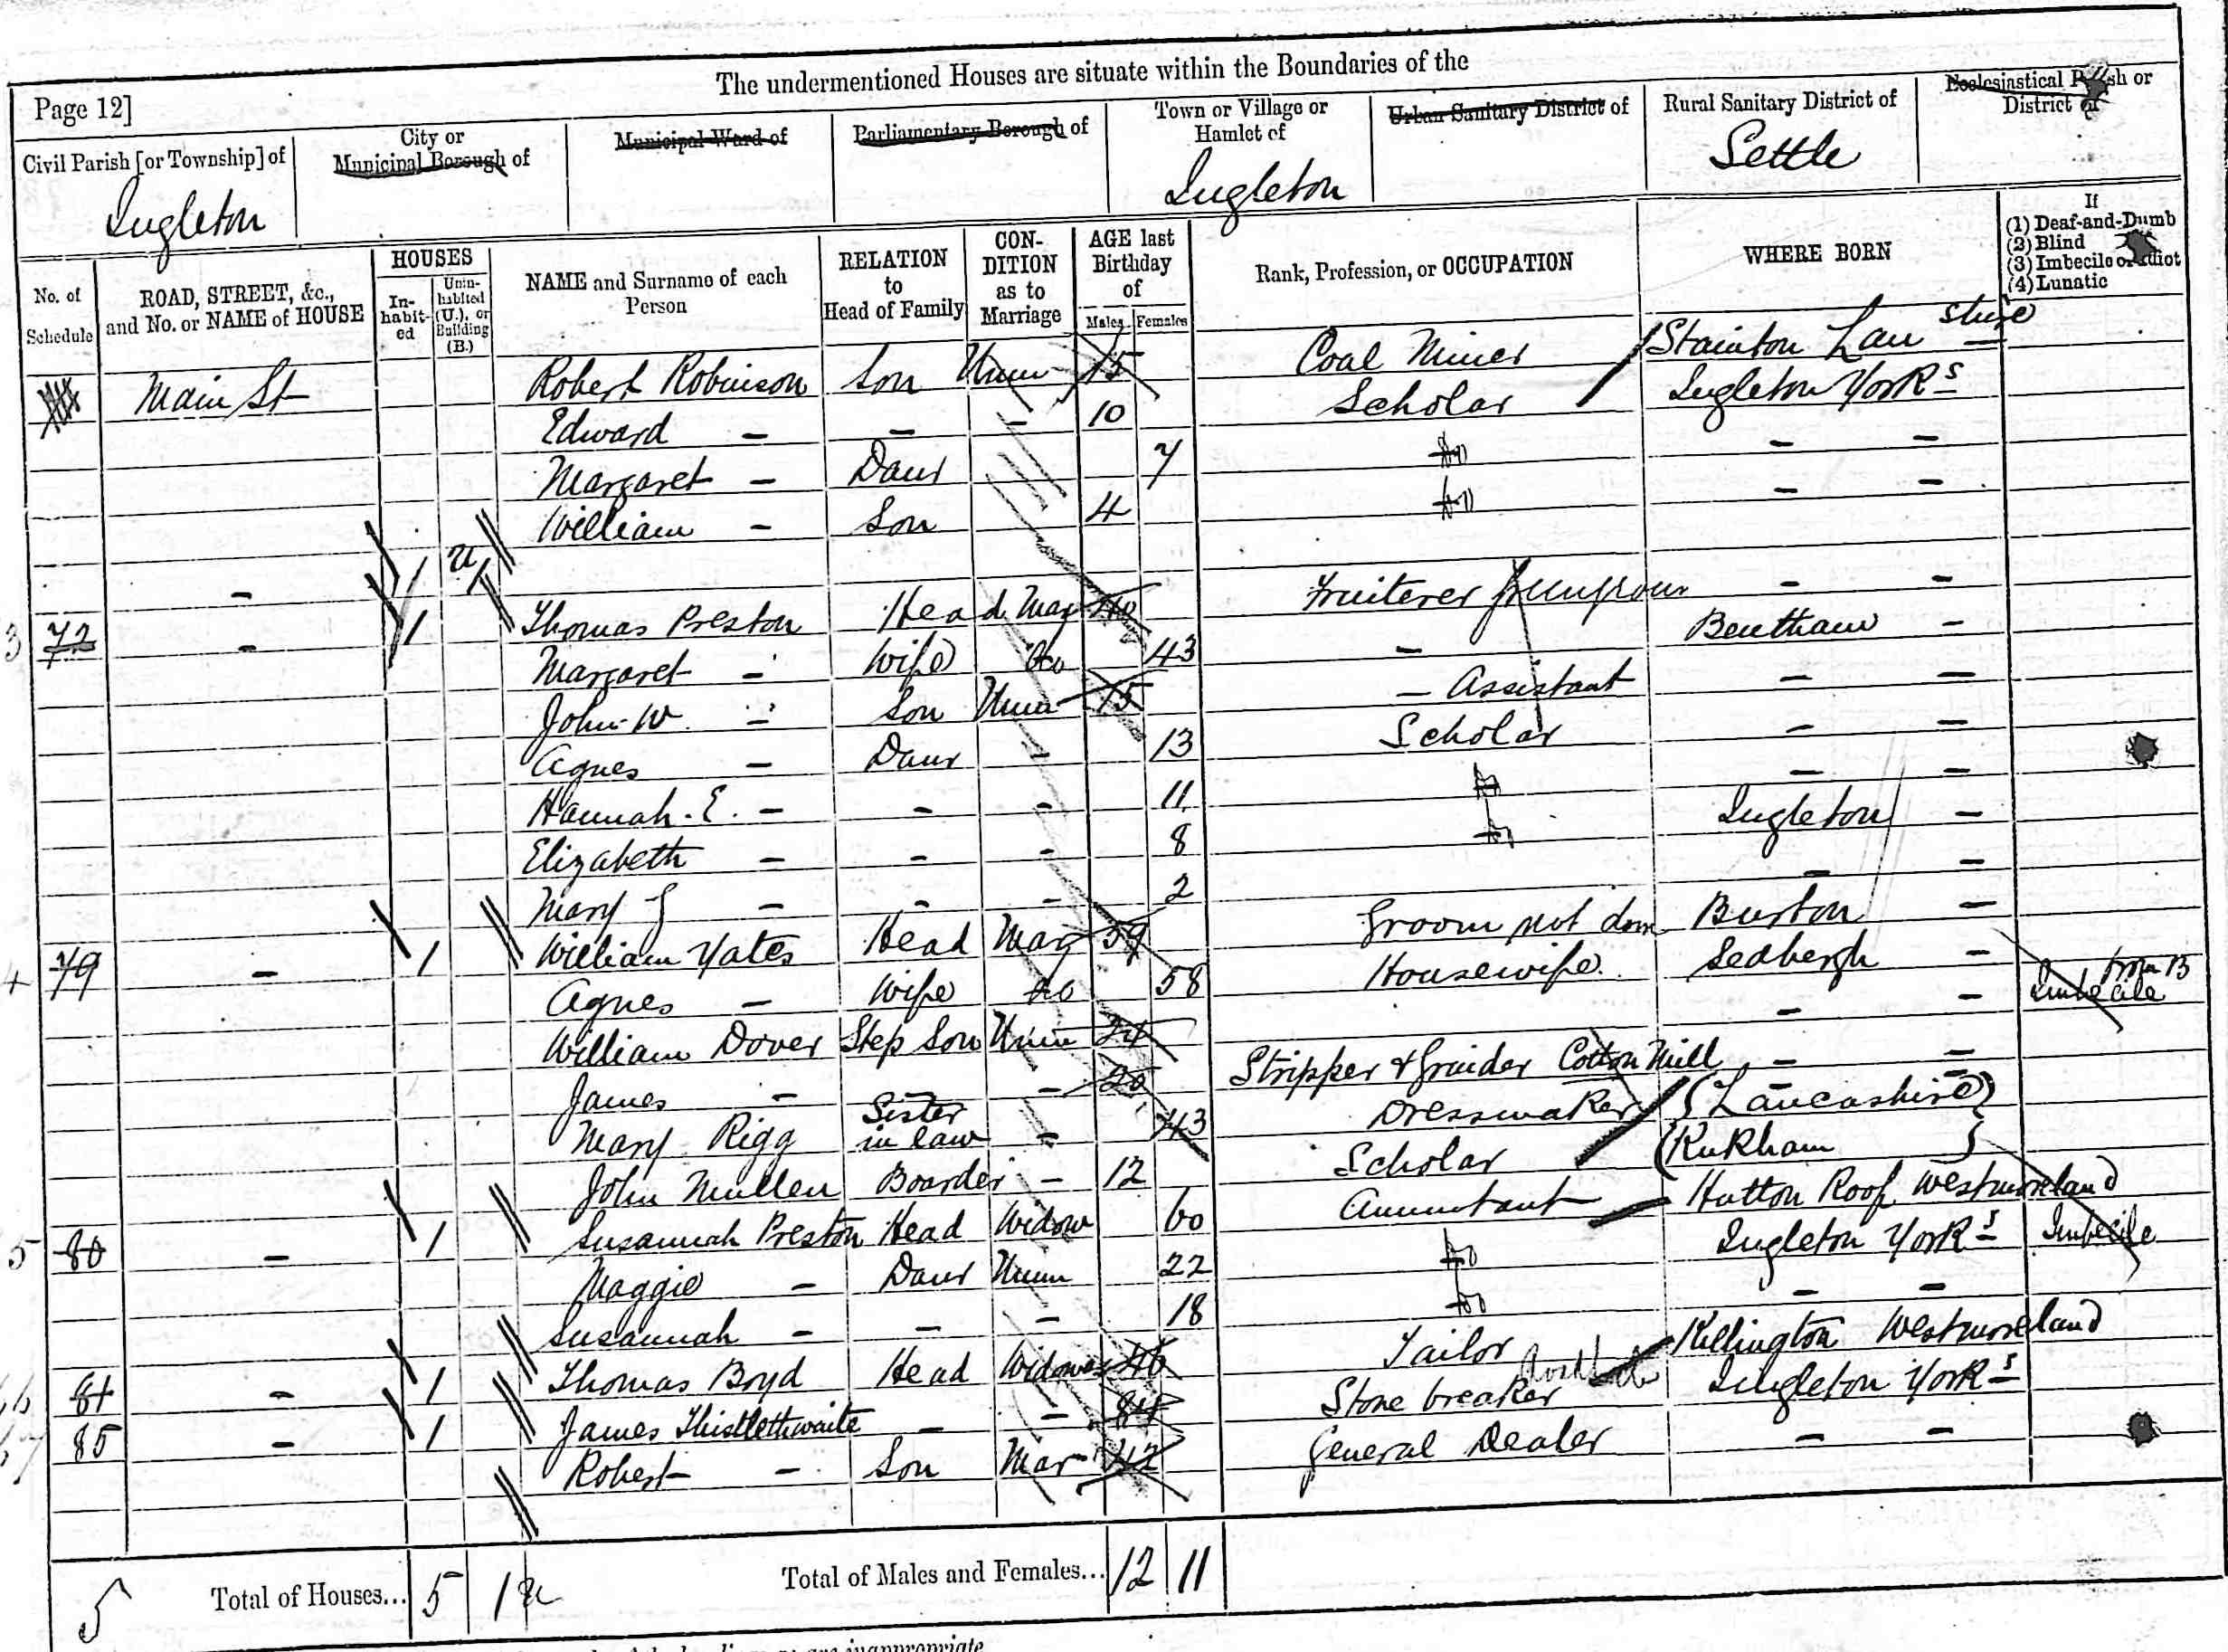 The undermentioned Houses are situate within the Boundaries of the
Page 12]
Civil Parish [or Township] of
Ingleton
City or Municipal Borough of
Municipal Ward of
Parliamentary Borough of
Town or Village or Hamlet of
Ingleton
Urban Sanitary District of
Rural Sanitary District of
Settle
Ecclesiastical Parish or District of
No. of Schedule
ROAD, STREET, &c., and No. or NAME of HOUSE
HOUSES
In-habit-ed
Unin-habited (U.), or Building (B.)
NAME and Surname of each Person
RELATION to Head of Family
CON-DITION as to Marriage
AGE last Birthday of
Males Females
Rank, Profession, or OCCUPATION
WHERE BORN
If
(1) Deaf-and-Dumb
(2) Blind
(3) Imbecile or Idiot
(4) Lunatic
Main St Robert Robinson Son Unm 15 Coal Miner Stainton Lan shire
Edward — — — 10 Scholar Ingleton Yorks
Margaret — Daur 7 do — —
William — Son 4 do — —
— 1 U
3 72 — 1 Thomas Preston Head Mar 40 Fruiterer — —
Margaret — Wife do 43 — Bentham —
John W — Son Unm 15 — Assistant — —
Agnes — Daur — 13 Scholar — —
Hannah. E. — — — 11 do — —
Elizabeth — — — 8 do Ingleton —
Mary — — — 2 — —
4 79 — 1 William Yates Head Mar 59 Groom not dom Burton —
Agnes — Wife do 58 Housewife Sedbergh —
William Dover Step Son Unm 24 — — Imbecile from B
James — — 20 Stripper & Grinder Cotton Mill — —
Mary Rigg Sister in law — 43 Dressmaker { Lancashire }
John Mullen Boarder — 12 Scholar ( Kirkham }
5 80 — 1 Susannah Preston Head Widow 60 Annuitant Hutton Roof Westmoreland
Maggie — Daur Unm 22 do Ingleton Yorks Imbecile
Susannah — — — 18 do — —
81 — 1 Thomas Boyd Head Widower 46 Tailor Killington Westmoreland
85 — 1 James Thistlethwaite — — 84 Stone breaker Ingleton Yorks
Robert — Son Mar 42 General Dealer — —
5 Total of Houses... 5 1 u Total of Males and Females... 12 11